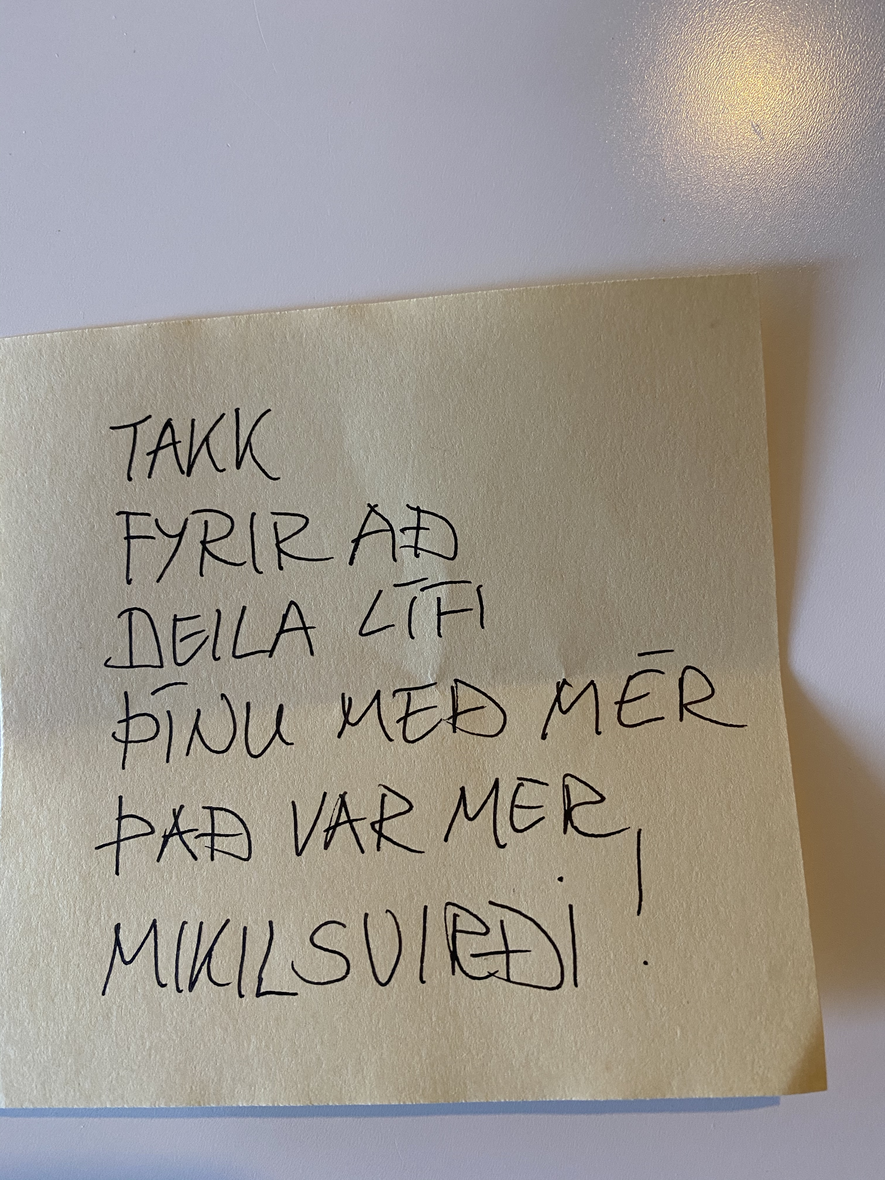 TAKK
FYRIR AÐ
DEILA LĪFI
ÞĪNU MEÐ MĒR
ÞAÐ VAR MER
MIKILSVIRÐI !